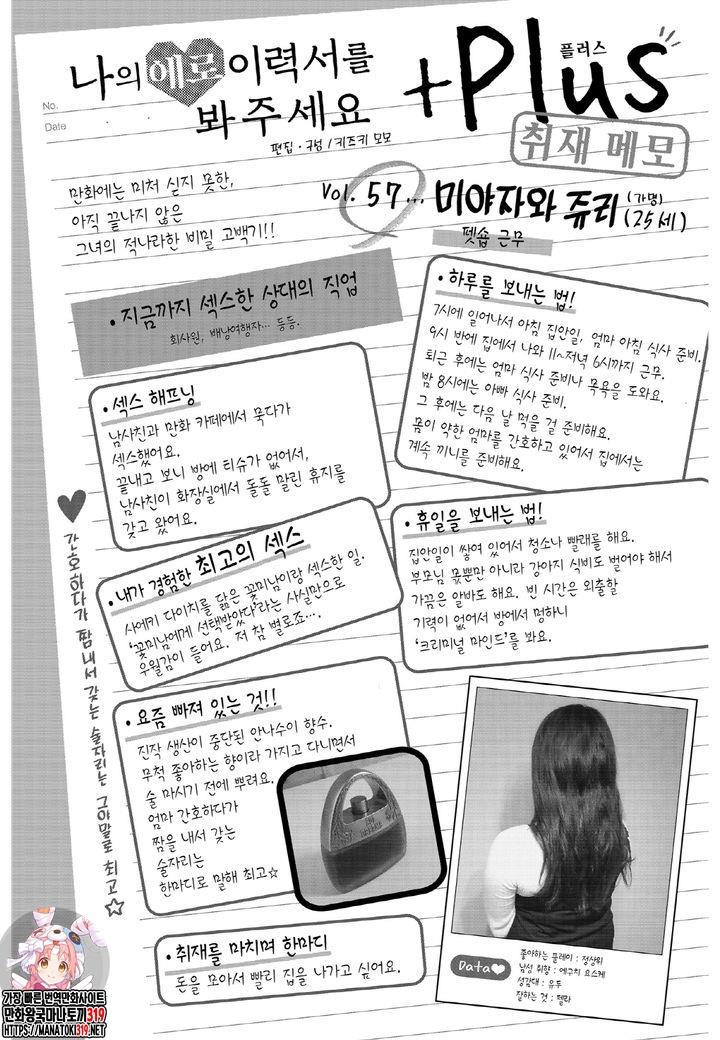 No.
Date
나의 에로 이력서를
봐 주세요
+Plus
플러스
취재 메모
편집·구성 / 키즈키 모모
만화에는 미처 싣지 못한,
아직 끝나지 않은
그녀의 적나라한 비밀 고백기!!
Vol. 57... 미야자와 쥬리 (가명) (25세)
펫숍 근무
• 지금까지 섹스한 상대의 직업
회사원, 배낭여행자... 등등.
• 하루를 보내는 법!
7시에 일어나서 아침 집안일, 엄마 아침 식사 준비.
9시 반에 집에서 나와 11~저녁 6시까지 근무.
퇴근 후에는 엄마 식사 준비나 목욕을 도와요.
밤 8시에는 아빠 식사 준비.
그 후에는 다음 날 먹을 걸 준비해요.
몸이 약한 엄마를 간호하고 있어서 집에서는
계속 끼니를 준비해요.
• 섹스 해프닝
남사친과 만화 카페에서 묵다가
섹스했어요.
끝내고 보니 방에 티슈가 없어서,
남사친이 화장실에서 돌돌 말린 휴지를
갖고 왔어요.
• 휴일을 보내는 법!
집안일이 쌓여 있어서 청소나 빨래를 해요.
부모님 몫뿐만 아니라 강아지 식비도 벌어야 해서
가끔은 알바도 해요. 빈 시간은 외출할
기력이 없어서 방에서 멍하니
'크리미널 마인드'를 봐요.
• 내가 경험한 최고의 섹스
사에키 다이치를 닮은 꽃미남이랑 섹스한 일.
'꽃미남에게 선택받았다'라는 사실만으로
우월감이 들어요. 저 참 별로죠...
• 요즘 빠져 있는 것!!
진작 생산이 중단된 안나수이 향수.
무척 좋아하는 향이라 가지고 다니면서
술 마시기 전에 뿌려요.
엄마 간호하다가
짬을 내서 갖는
술자리는
한마디로 말해 최고☆
♥간호하다가 짬 내서 갖는 술자리는 그야말로 최고☆
• 취재를 마치며 한마디
돈을 모아서 빨리 집을 나가고 싶어요.
Data♥
좋아하는 플레이 : 정상위
남성 취향 : 에구치 요스케
성감대 : 유두
잘하는 것 : 펠라
가장 빠른 번역만화사이트
만화왕국마나토끼319
HTTPS://MANATOKI319.NET